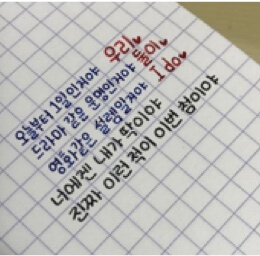 오늘부터 1일인거야 우리♥
드라마 같은 운명인거야 둘이♥
영화같은 설렘일거야 I do♥
너에겐 내가 딱이야
진짜 이런 적이 이번 첨이야